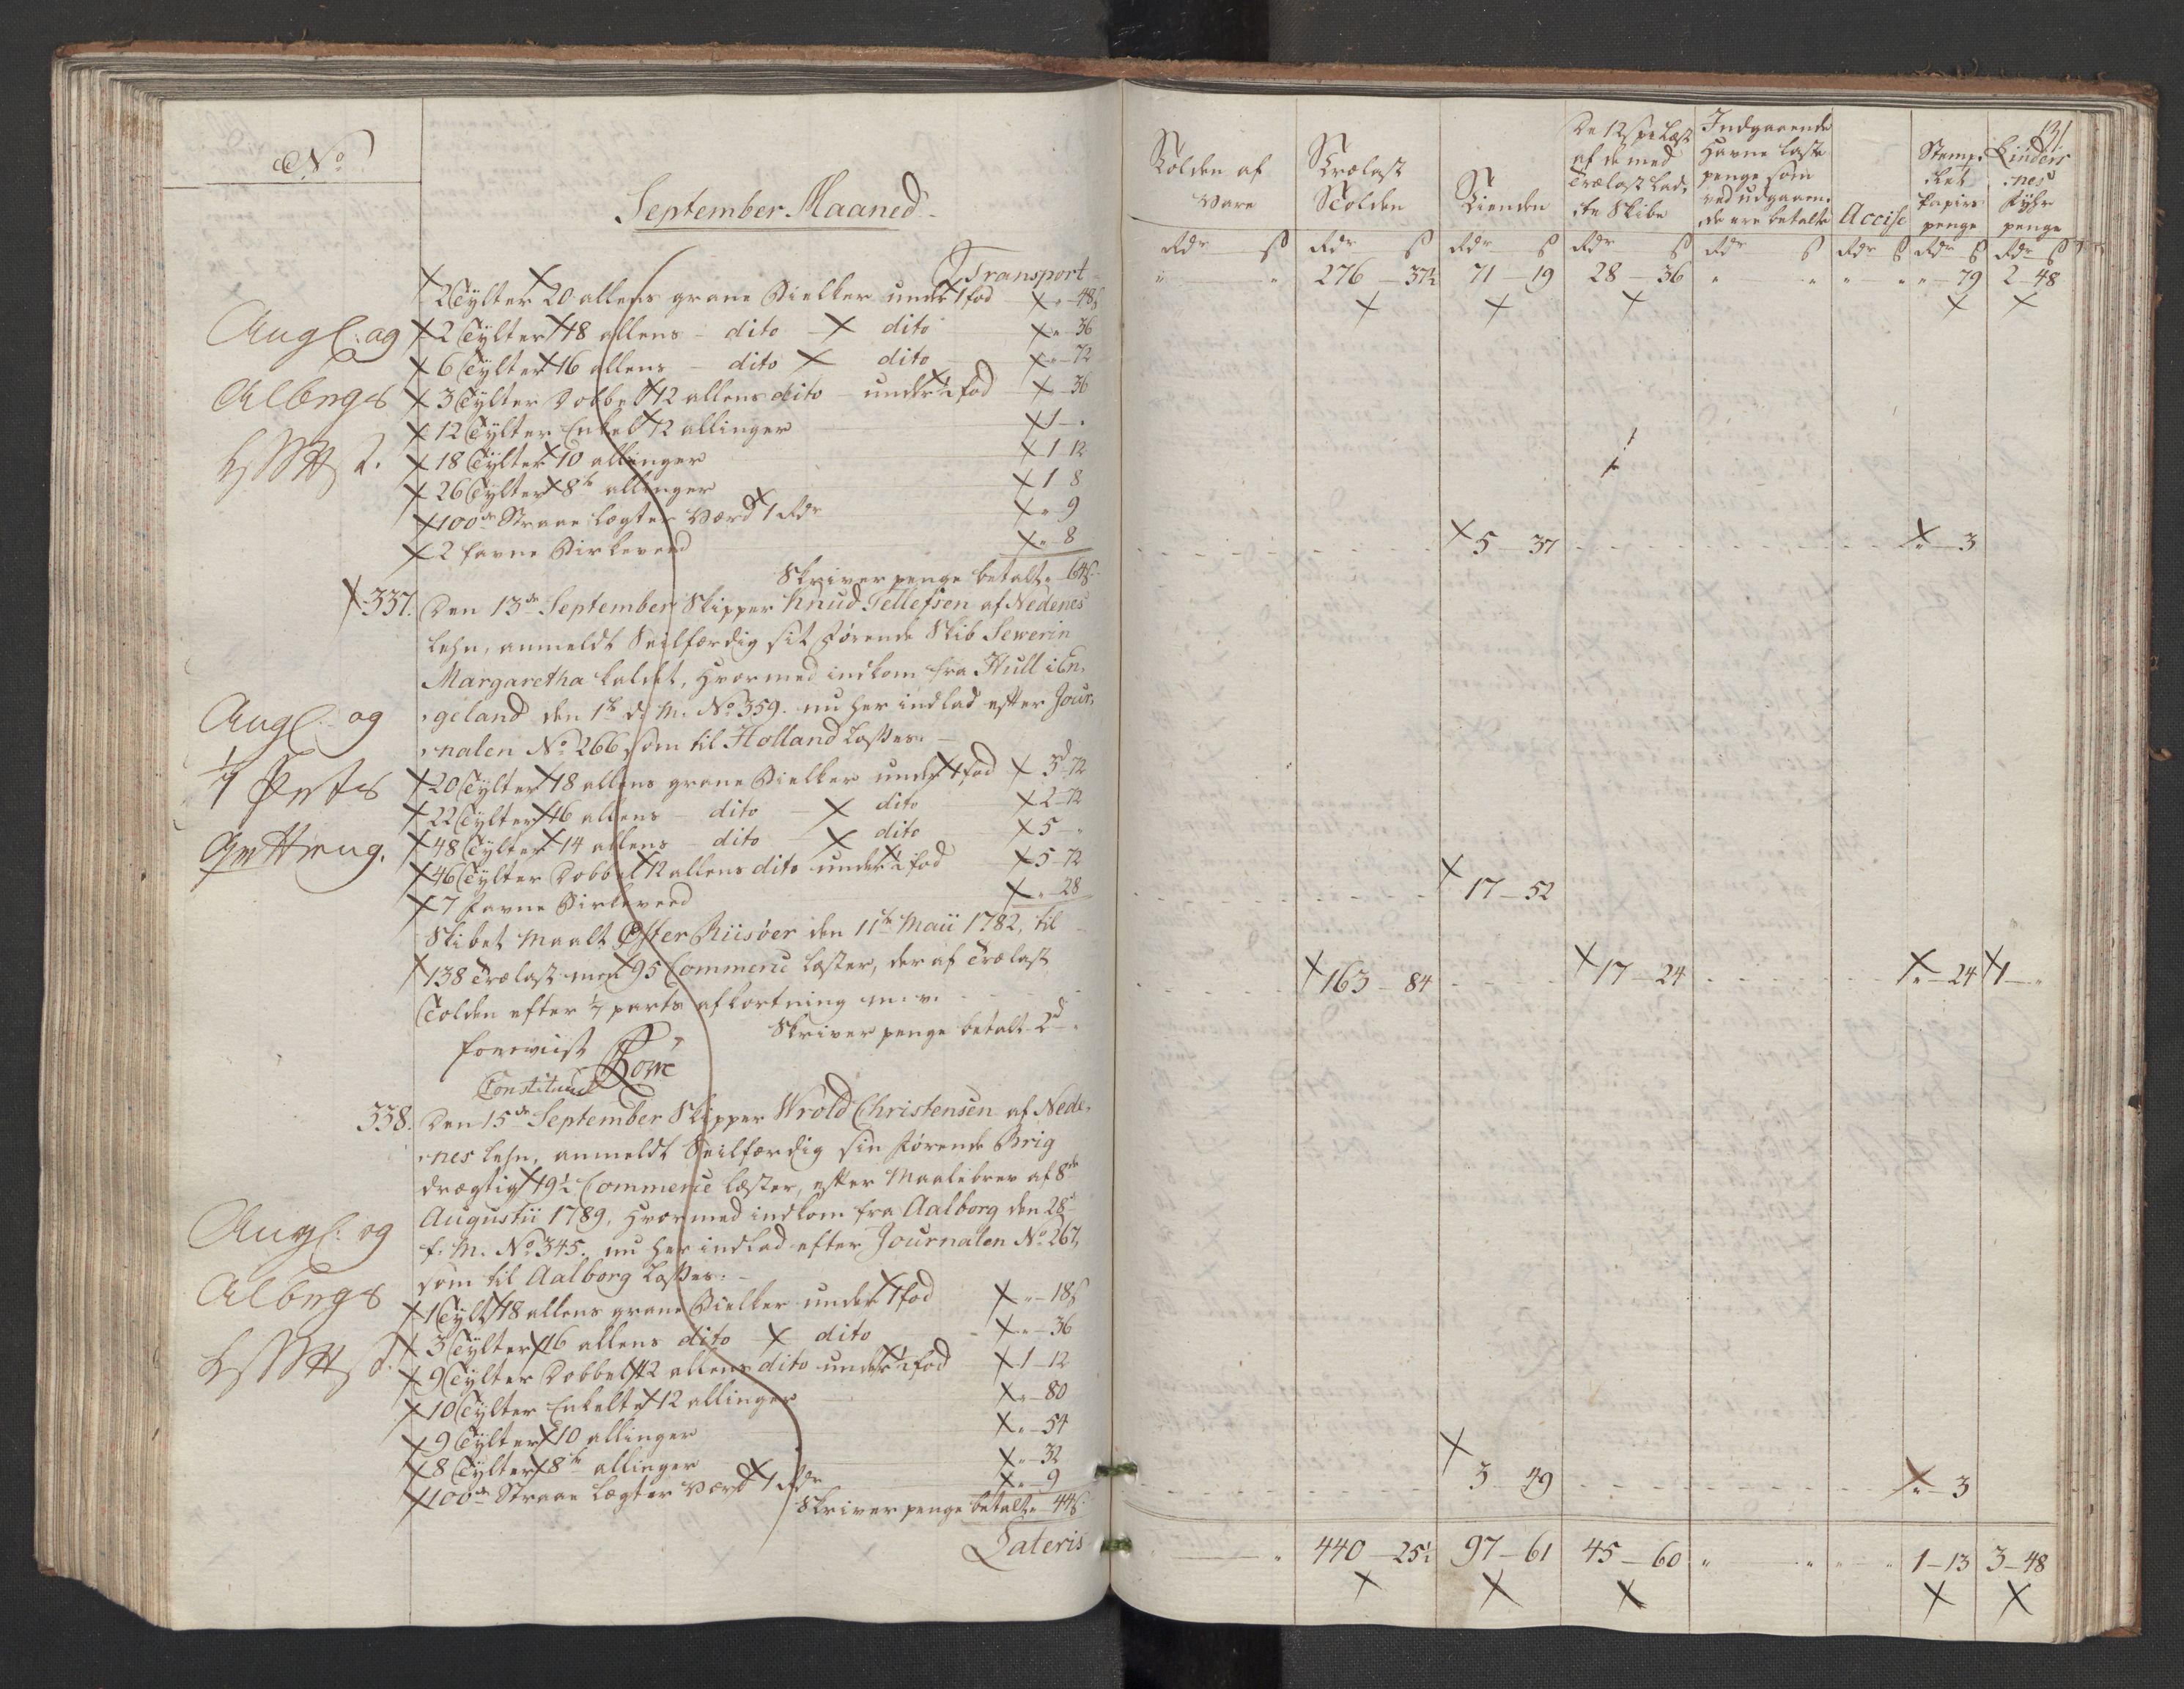 No
September Maaned
Transport
2 Tylter 20 allens grane Bielker under 1 fod " 48ß
Angl: og
2 Tylter 18 allens - dito - dito " 36
6 Tylter 16 allens - dito dito " 72
Albrgs
3 Tylter Dobbel 12 allens dito under ½ fod " 36
12 Tylter Enkel 12 allinger 1 - "
18 Tylter 10 allinger 1 12
26 Tylter 8te allinger 1 8
100de Straae lægter Værd 1 Rdr " 9
2 favne Birkeved " 8
Skriver penge betalt " 64ß
337. Den 13de September Skipper Knud Tellefsen af Nedenes
Lehn, anmeldt Seilfærdig sit førende Skib Sewerin
Margaretha kaldet, hvormed indkom fra Hull i En-
geland den 1te d: M. No 359. nu her indlad efter Jour-
Angl: og
nalen No 266 som til Holland losses.
20 Tylter 18 allens grane Bielker under 1 fod 3d 72
22 Tylter 16 allens - dito - dito 2 - 72
48 Tylter 14 allens - dito dito 5 - "
46 Tylter Dobbel 12 allens dito under ½ fod 5 - 72
7 favne Birkeved " 28
Skibet Maalt Øster Riisøer den 11te Maii 1782, til
138 Trælast med 95 Commerce læster, der af Trælast
Tolden efter ½ parts afkortning m. v.
Skriver penge betalt 2d "
foreviist
Constitueret
338. Den 15de September Skipper Wrold Christensen af Nede-
nes Lehn, anmeldt Seilfærdig sin førende Brig
drægtig 19½ Commerce læster, efter Maalebrev af 8de
Augustii 1789, hvormed indkom fra Aalborg den 28de
Angl: og
f. M. No 345. nu her indlad efter Journalen No 267,
som til Aalborg losses.
Albrgs
1 Tylt 18 allens grane Bielker under 1 fod " 18ß
3 Tylter 16 allens dito dito " 36
9 Tylter Dobbelt 12 allens dito under ½ fod 1 - 12
10 Tylter Enkelte 12 allinger " 80
9 Tylter 10 allinger " 54
8 Tylter 8te allinger " 32
100de Straae lægter Værd 1 Rdr " 9
Skriver penge betalt " 44ß
Lateris
131
Tolden af Vare
Trælast Tolden
Tienden
De 12 ß pr Læst af de med Trælast lad- te Skibe
Indgaaende Havne laste penge som ved udgaaen- de ere betalte
Accise
Stemp- let Papirs penge
Linders- nes Fyhr penge
Rdr ß Rdr ß Rdr ß Rdr ß Rdr ß Rdr ß Rdr ß Rdr ß
" " 276 - 37½ 71 - 19 28 - 36 " " " " " 79 2 - 48
5 - 37 " 3
17 - 52
163 - 84 17 - 24 " 24 1 - "
3 - 49 " 3
" 440 - 25½ 97 - 61 45 - 60 " " " " 1 - 13 3 - 48